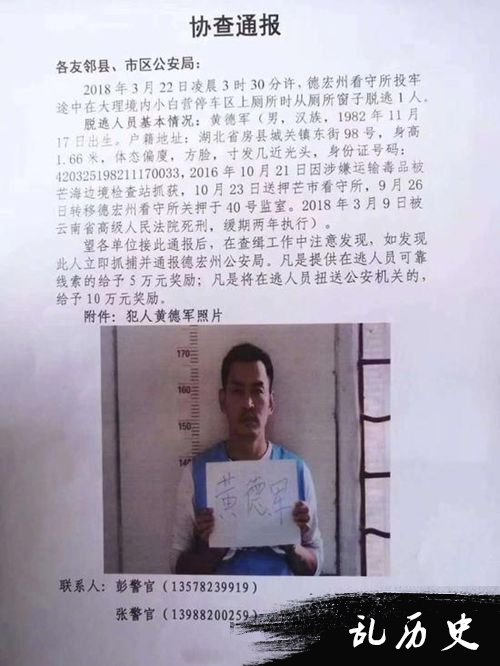 协查通报
各友邻县、市区公安局：
2018年3月22日凌晨3时30分许，德宏州看守所投牢
途中在大理境内小白营停车区上厕所时从厕所窗子脱逃1人。
脱逃人员基本情况：黄德军（男，汉族，1982年11月
17日出生。户籍地址：湖北省房县城关镇东街98号，身高
1.66米，体态偏瘦，方脸，寸发几近光头，身份证号码：
420325198211170033，2016年10月21日因涉嫌运输毒品被
芒海边境检查站抓获，10月23日送押芒市看守所，9月26
日转移德宏州看守所关押于40号监室。2018年3月9日被
云南省高级人民法院死刑，缓期两年执行）。
望各单位接此通报后，在查缉工作中注意发现，如发现
此人立即抓捕并通报德宏州公安局。凡是提供在逃人员可靠
线索的给予5万元奖励；凡是将在逃人员扭送公安机关的，
给予10万元奖励。
附件：犯人黄德军照片
170
160
150
140
黄德军
联系人：彭警官（13578239919）
张警官（13988200259）
乱历史